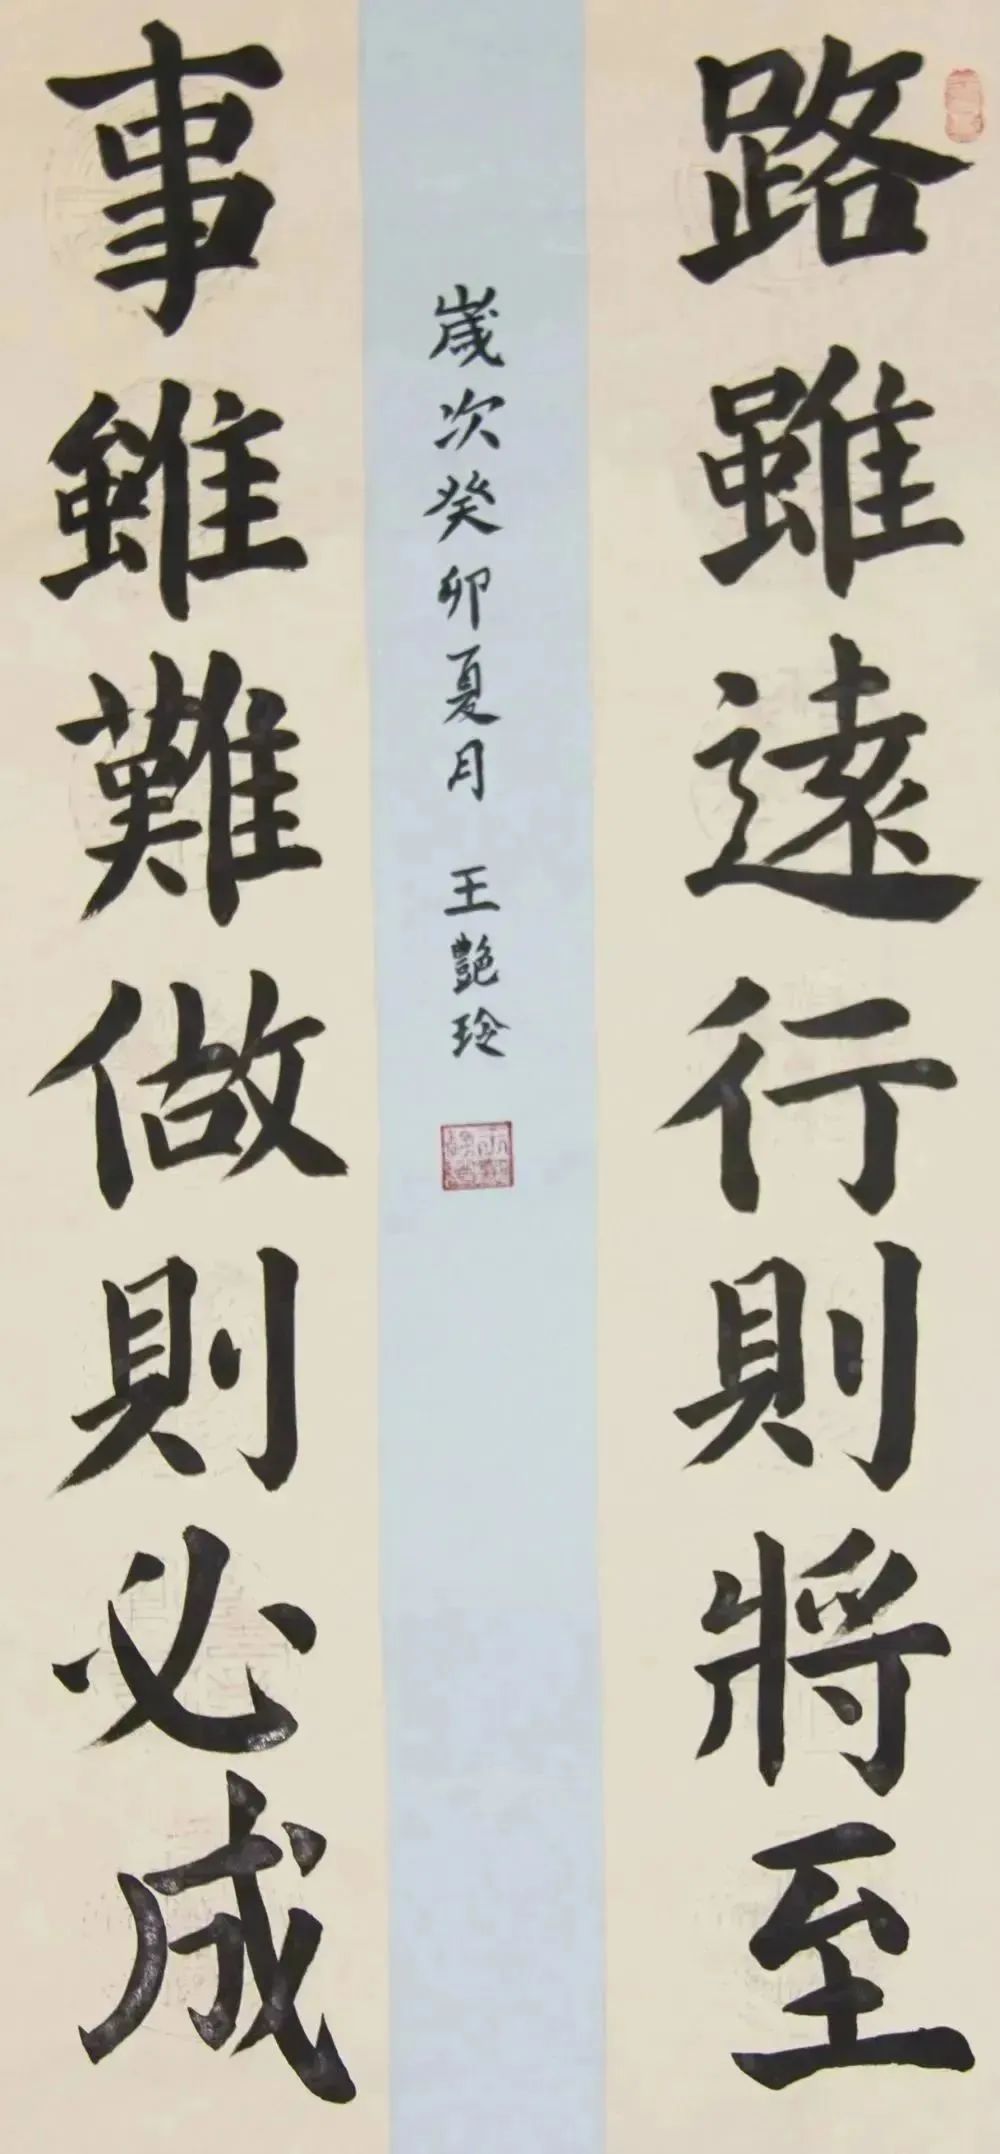 路雖遠行則將至
事雖難做則必成
歲次癸卯夏月 王艷玲